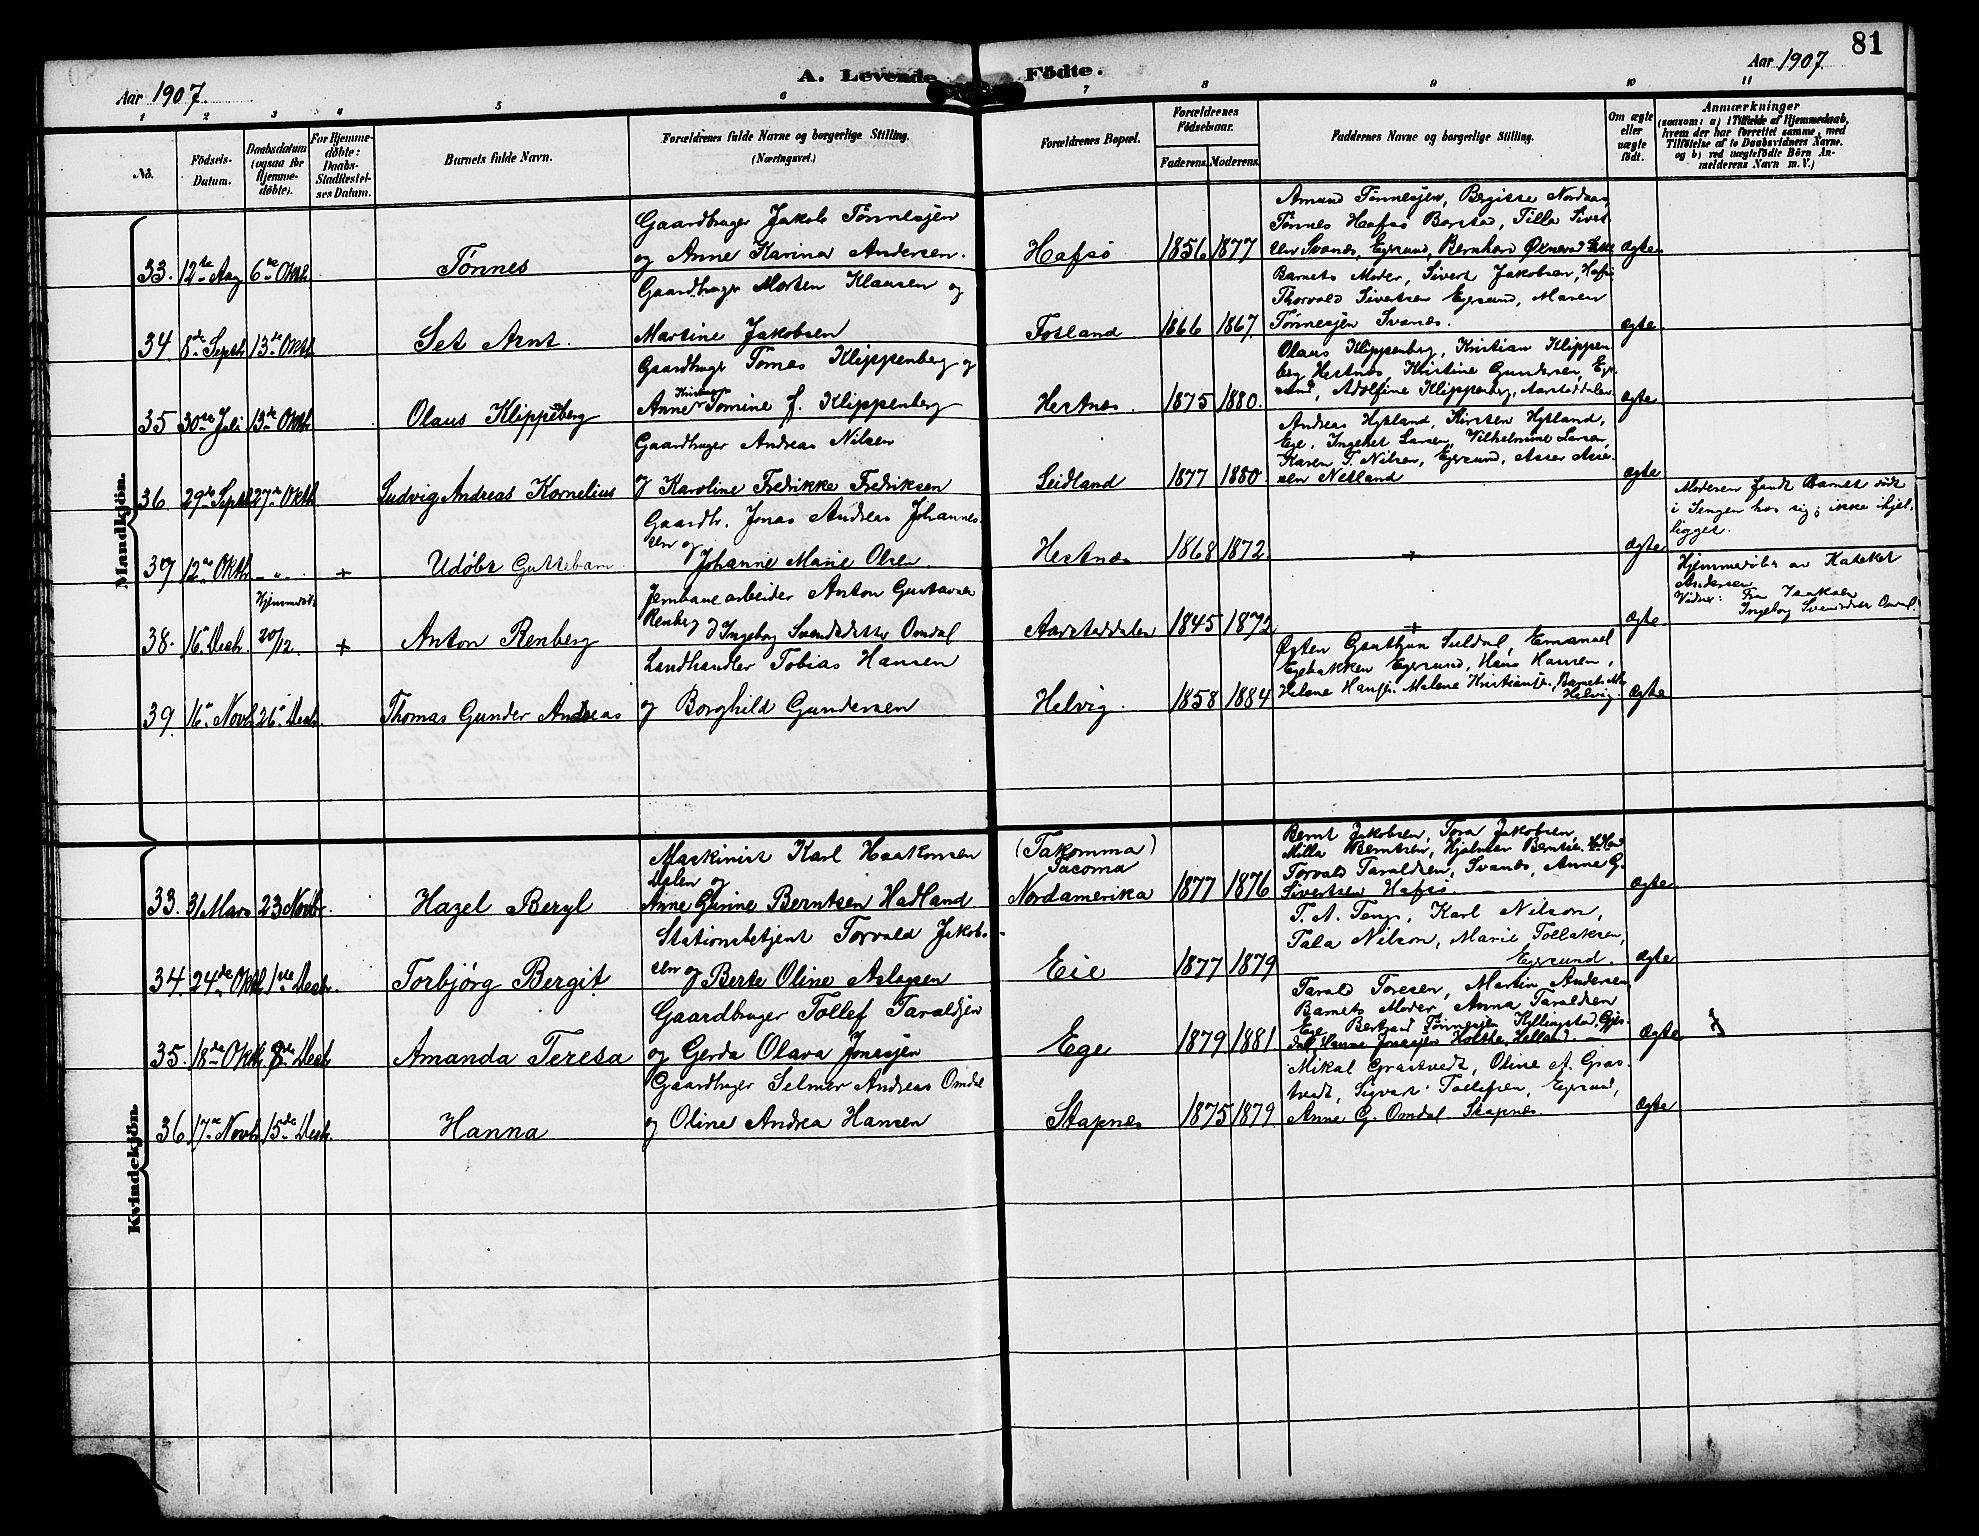 81
Aar 1907.
A. Levende Födte.
Aar 1907.
1 2 3 4 5 6 7 8 9 10 11
No.
Födsels-Datum.
Daabsdatum (ogsaa for Hjemme-döbte).
For Hjemme-döbte: Daabs-Stadfæstel-ses Datum.
Barnets fulde Navn.
Forældrenes fulde Navne og borgerlige Stilling.
(Næringsvei.)
Forældrenes Bopæl.
Forældrenes Födselsaar.
Faderens. Moderens.
Faddernes Navne og borgerlige Stilling.
Om ægte eller uægte födt.
Anmærkninger
(saasom: a) i Tilfælde af Hjemmedaab,
hvem der har forrettet samme, med
Tilföielse af to Daabsvidners Navne.
og b) ved uægtefödte Börn An-
melderens Navn m. V.)
Mandkjön.
33. 12te Aug 6te Oktb. Tönnes
Gaardbruger Jakob Tönnesjen
og Anne Karina Andersen.
Hafsö 1856 1877
Amund Tönnesjen, Bergitte Nordaas,
Tönnes Hafsö Barstad, Tilla Sivert
sen Svanes, Egersund, Bernhard
ægte
34 8de Septb. 13de Oktb. Set Arnt.
Gaardbruger Morten Klausen og
Martine Jakobsen
Fotland 1866 1867.
Barnets Moder, Sivert Jakobsen, Hafsö
Thorvald Sivertsen Egersund, Maren
Tönnesjen Svanes.
ægte
35 30te Juli 13de Oktb. Olaus Klippeberg
Gaardbruger Tomas Klippenberg og
Anne Tomine f. Klippenberg
Hestnes. 1875 1880.
Olaus Klippenberg, Kristian Klippen
berg Hestnes, Kristine Gundersen, Eger
sund, Adolfine Klippenberg, Aarstaddalen
ægte
36 29de Septb. 27de Oktb. Ludvig Andreas Kornelius
Gaardbruger Andreas Nilsen
og Karoline Fredrikke Fredriksen
Leidland 1877 1880.
Andreas Hytland, Kirsten Hytland,
Ege, Ingebret Larsen, Vilhelmine Larsen,
Karen T. Nilsen, Egersund, Asser Asser
sen Netland
ægte
37 12te Oktb. - " - + Udöbt Guttebarn
Gaardbr. Jonas Andreas Johannes-
sen og Johanne Marie Olsen.
Hestnes. 1868 1872. +
ægte
Moderen fandt Barnet dödt
i Sengen hos sig; ikke ihjel-
ligget.
38. 16. Decb. Hjemmedöbt 20/12. + Anton Renberg
Jernbanearbeider Anton Gustavsen
Renberg og Ingebog Svendsdatter Omdal
Aarstaddalen 1845 1872 +
ægte
Hjemmedöbt av Kateket
Andersen
Vidner: Fru Isaksen
Ingebog Svendsdatter Omdal.
39. 16. Novb. 26. Decb. Thomas Gunder Andreas
Landhandler Tobias Hansen
og Borghild Gundersen
Helvig. 1858 1884
Emanuel
Egebakken Egersund, Hans Hansen,
Helene Hansen. Malene Kristiansen. Barnets Mor
Helvig.
ægte
Kvindekjön.
33. 31 Mars 23 Novbr. Hazel Beryl
Maskinist Karl Haakonsen
og
Anne Gurine Berntsen Hadland
(Takomma)
Tacoma
Nordamerika 1877 1876
Bernt Jakobsen, Tora Jakobsen,
Milla Berntsen, Hjalmar Berntsen,
Torvald Taraldsen, Svanes, Anne G.
Sivertsen Hafsö.
ægte
34. 24de Oktb. 1ste Decb. Torbjörg Bergit
Stationsbetjent Torvald Jakob-
sen og Berte Oline Aslagsen
Eie 1877 1879
T. A. Tengs, Karl Nilson,
Tala Nilson, Marie Tollaksen,
Egersund.
ægte
35. 18de Oktb. 8de Decb. Amanda Teresa
Gaardbruger Tollef Taraldsen
og Gerda Olava Jonassen
Ege 1879 1881
Tarald Toresen, Martin Andersen
Barnets Moder, Anna Taraldsen
Ege, Bertrand Tönnesjen Kyllingstad,
Hanne Jonassen Helleland.
ægte
36 17de Novb. 15de Decb. Hanna
Gaardbruger Selmer Andreas Omdal
og Oline Andrea Hansen
Stapnes 1875 1879.
Mikal Grastvedt, Oline A. Gras-
tvedt, Sigvart Tollefsen, Egersund,
Anne G. Omdal Stapnes.
ægte